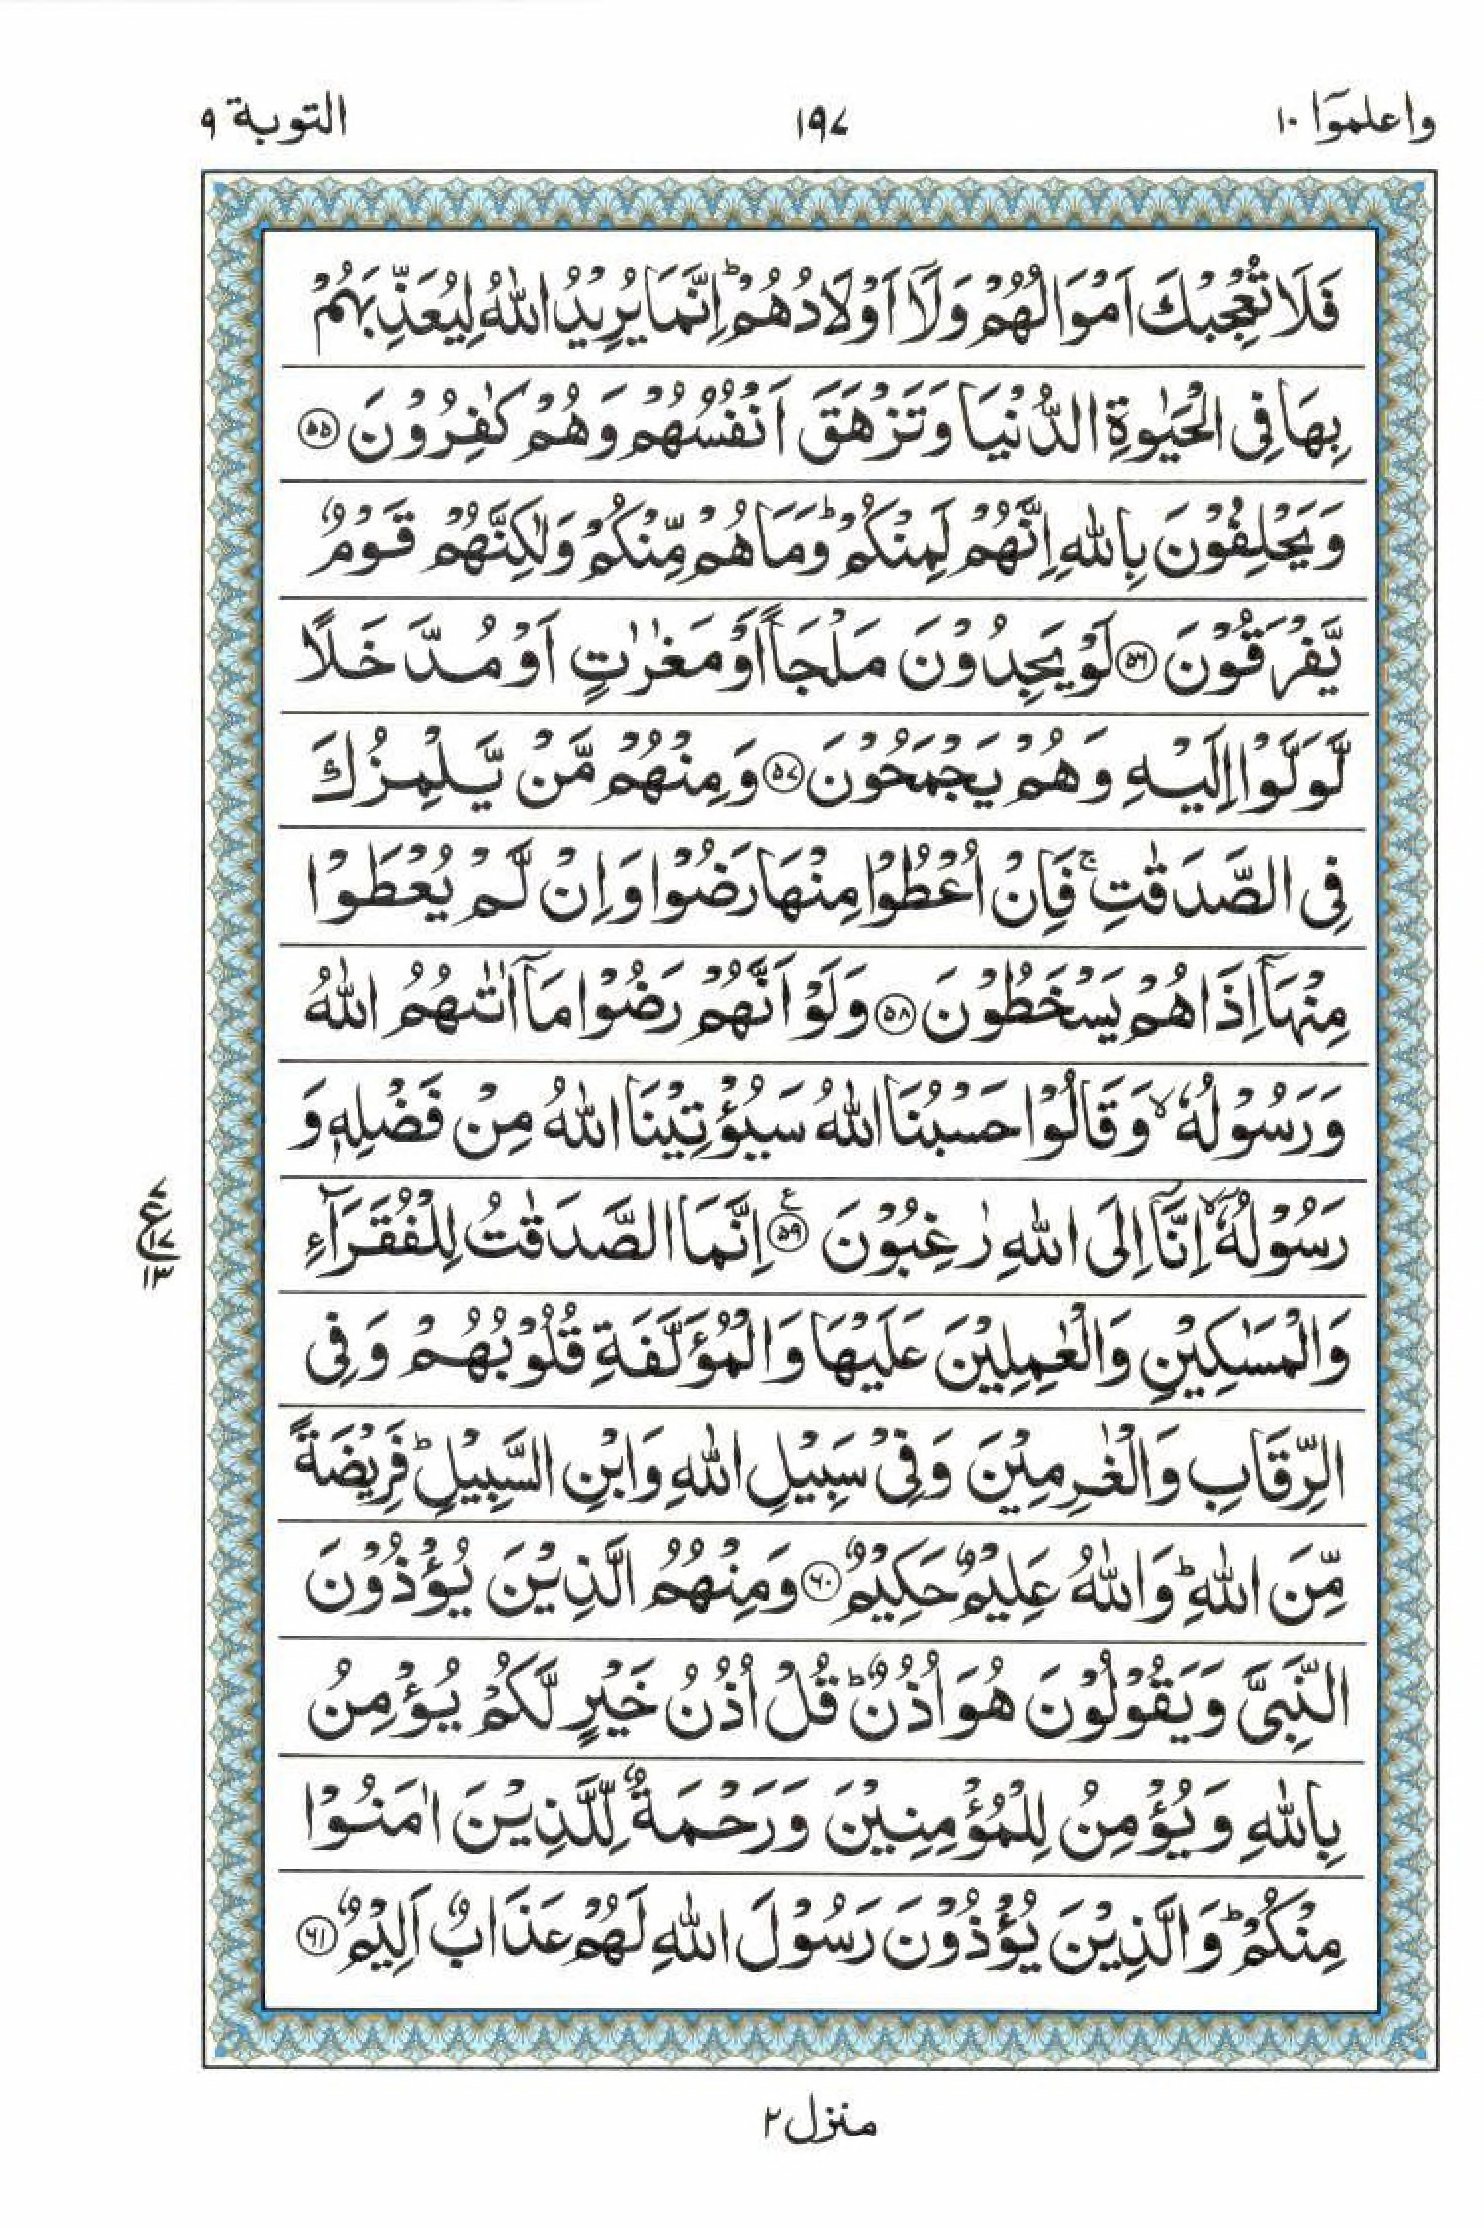 واعلموٓا ١٠
١٩٧
التوبة ٩
فَلَا تُعْجِبْكَ اَمْوَالُهُمْ وَلَاۤ اَوْلَادُهُمْ ؕ اِنَّمَا يُرِيْدُ اللّٰهُ لِيُعَذِّبَهُمْ
بِهَا فِى الْحَيٰوةِ الدُّنْيَا وَتَزْهَقَ اَنْفُسُهُمْ وَهُمْ كٰفِرُوْنَ ۝۵۵
وَيَحْلِفُوْنَ بِاللّٰهِ اِنَّهُمْ لَمِنْكُمْ ؕ وَمَا هُمْ مِّنْكُمْ وَلٰكِنَّهُمْ قَوْمٌ
يَّفْرَقُوْنَ ۝۵۶ لَوْ يَجِدُوْنَ مَلْجَاً اَوْ مَغٰرٰتٍ اَوْ مُدَّخَلًا
لَّوَلَّوْا اِلَيْهِ وَهُمْ يَجْمَحُوْنَ ۝۵۷ وَمِنْهُمْ مَّنْ يَّلْمِزُكَ
فِى الصَّدَقٰتِ ۚ فَاِنْ اُعْطُوْا مِنْهَا رَضُوْا وَاِنْ لَّمْ يُعْطَوْا
مِنْهَاۤ اِذَا هُمْ يَسْخَطُوْنَ ۝۵۸ وَلَوْ اَنَّهُمْ رَضُوْا مَاۤ اٰتٰىهُمُ اللّٰهُ
وَرَسُوْلُهٗ ۙ وَقَالُوْا حَسْبُنَا اللّٰهُ سَيُؤْتِيْنَا اللّٰهُ مِنْ فَضْلِهٖ وَ
رَسُوْلُهٗۤ ۙ اِنَّاۤ اِلَى اللّٰهِ رٰغِبُوْنَ ۝۵۹ع اِنَّمَا الصَّدَقٰتُ لِلْفُقَرَآءِ
٧
ع
١٧
١٣
وَالْمَسٰكِيْنِ وَالْعٰمِلِيْنَ عَلَيْهَا وَالْمُؤَلَّفَةِ قُلُوْبُهُمْ وَفِى
الرِّقَابِ وَالْغٰرِمِيْنَ وَفِىْ سَبِيْلِ اللّٰهِ وَابْنِ السَّبِيْلِ ؕ فَرِيْضَةً
مِّنَ اللّٰهِ ؕ وَاللّٰهُ عَلِيْمٌ حَكِيْمٌ ۝۶۰ وَمِنْهُمُ الَّذِيْنَ يُؤْذُوْنَ
النَّبِىَّ وَيَقُوْلُوْنَ هُوَ اُذُنٌ ؕ قُلْ اُذُنُ خَيْرٍ لَّكُمْ يُؤْمِنُ
بِاللّٰهِ وَيُؤْمِنُ لِلْمُؤْمِنِيْنَ وَرَحْمَةٌ لِّلَّذِيْنَ اٰمَنُوْا
مِنْكُمْ ؕ وَالَّذِيْنَ يُؤْذُوْنَ رَسُوْلَ اللّٰهِ لَهُمْ عَذَابٌ اَلِيْمٌ ۝۶۱
منزل ٢